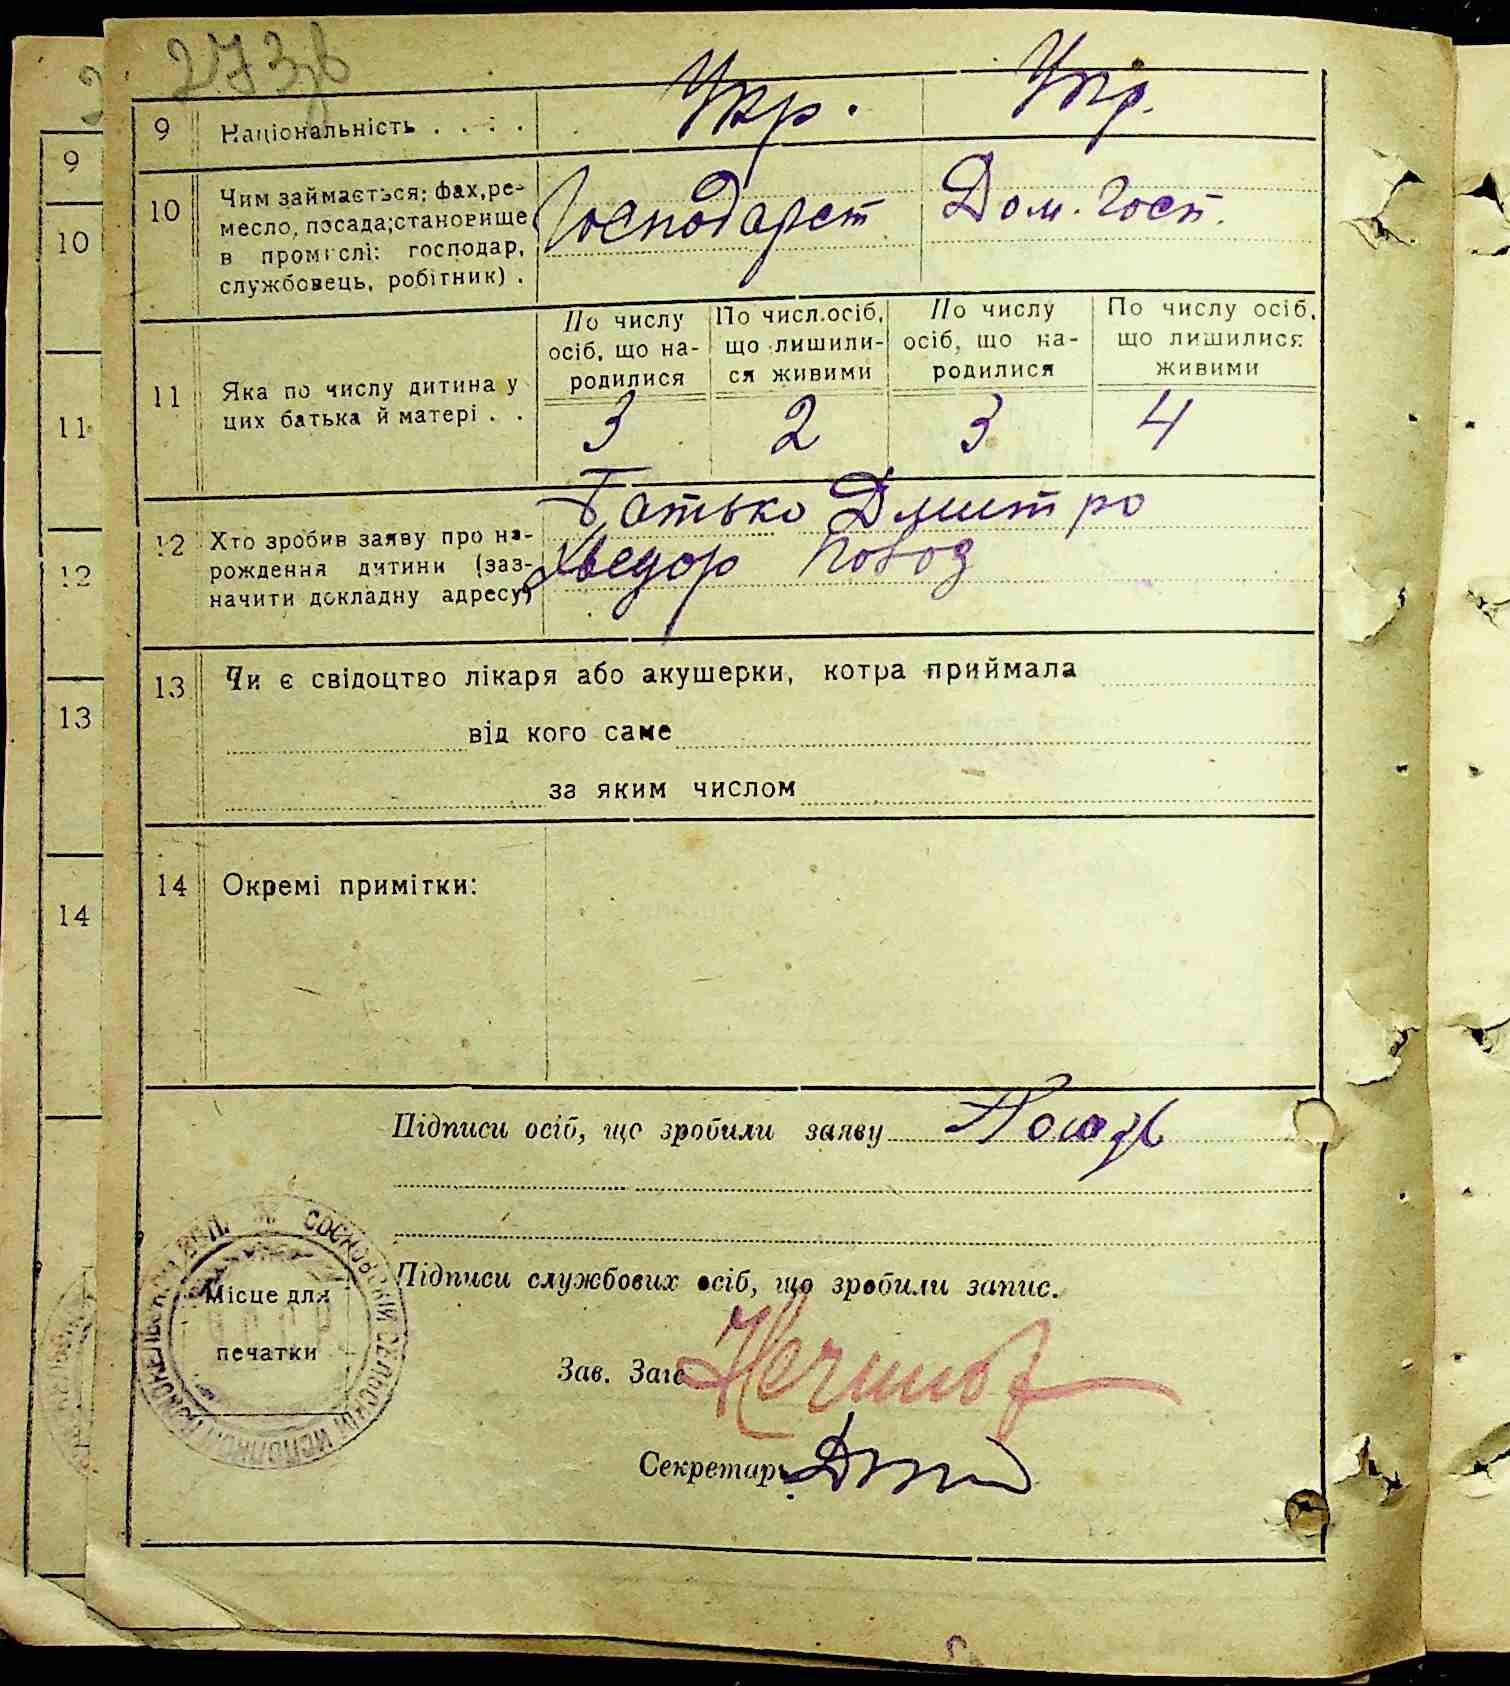 273зв
9 Національність . . . . Укр. Укр.
10 Чим займається: фах, ре-
месло, посада; становище
в промислі: господар,
службовець, робітник) .
Господарст Дом. госп.
По числу осіб, що на-родилися
По числ. осіб, що лишили-ся живими
По числу осіб, що на-родилися
По числу осіб, що лишилися живими
11 Яка по числу дитина у
цих батька й матері . .
3 2 3 4
12 Хто зробив заяву про на-
рождення дитини (заз-
начити докладну адресу)
Батько Дмитро
Хведор
13 Чи є свідоцтво лікаря або акушерки, котра приймала
від кого саме
за яким числом
14 Окремі примітки:
Підписи осіб, що зробили заяву
Підписи службових осіб, що зробили запис.
Місце для
печатки
Зав. Загс
Секретарь
СОСНОВСКИЙ СЕЛЬСКИЙ ИСПОЛКОМ
9
10
11
12
13
14